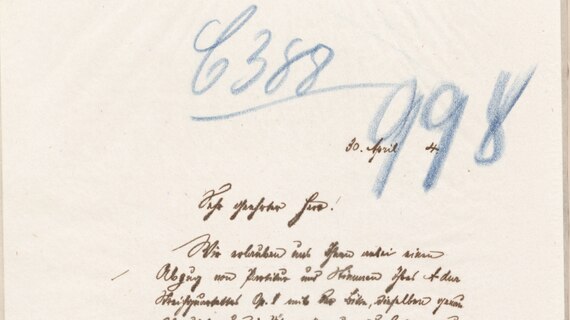 C388
998
30. April 4
Sehr geehrter Herr!
Wir erlauben uns Ihnen anbei einen
Abzug von Partitur und Stimmen Ihres A dur
Streichquartettes Op. 8 mit der Bitte, dieselben genau